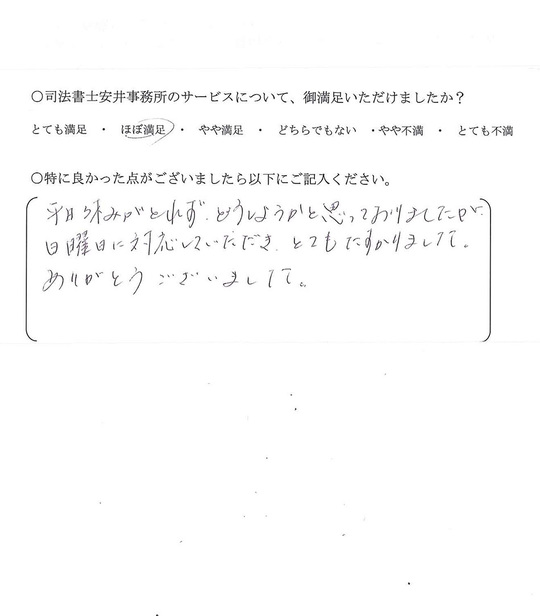 ○司法書士安井事務所のサービスについて、御満足いただけましたか？
とても満足 ・ ほぼ満足 ・ やや満足 ・ どちらでもない ・やや不満 ・ とても不満
○特に良かった点がございましたら以下にご記入ください。
平日休みがとれず、どうしようかと思っておりましたが、
日曜日に対応していただき、とてもたすかりました。
ありがとうございました。